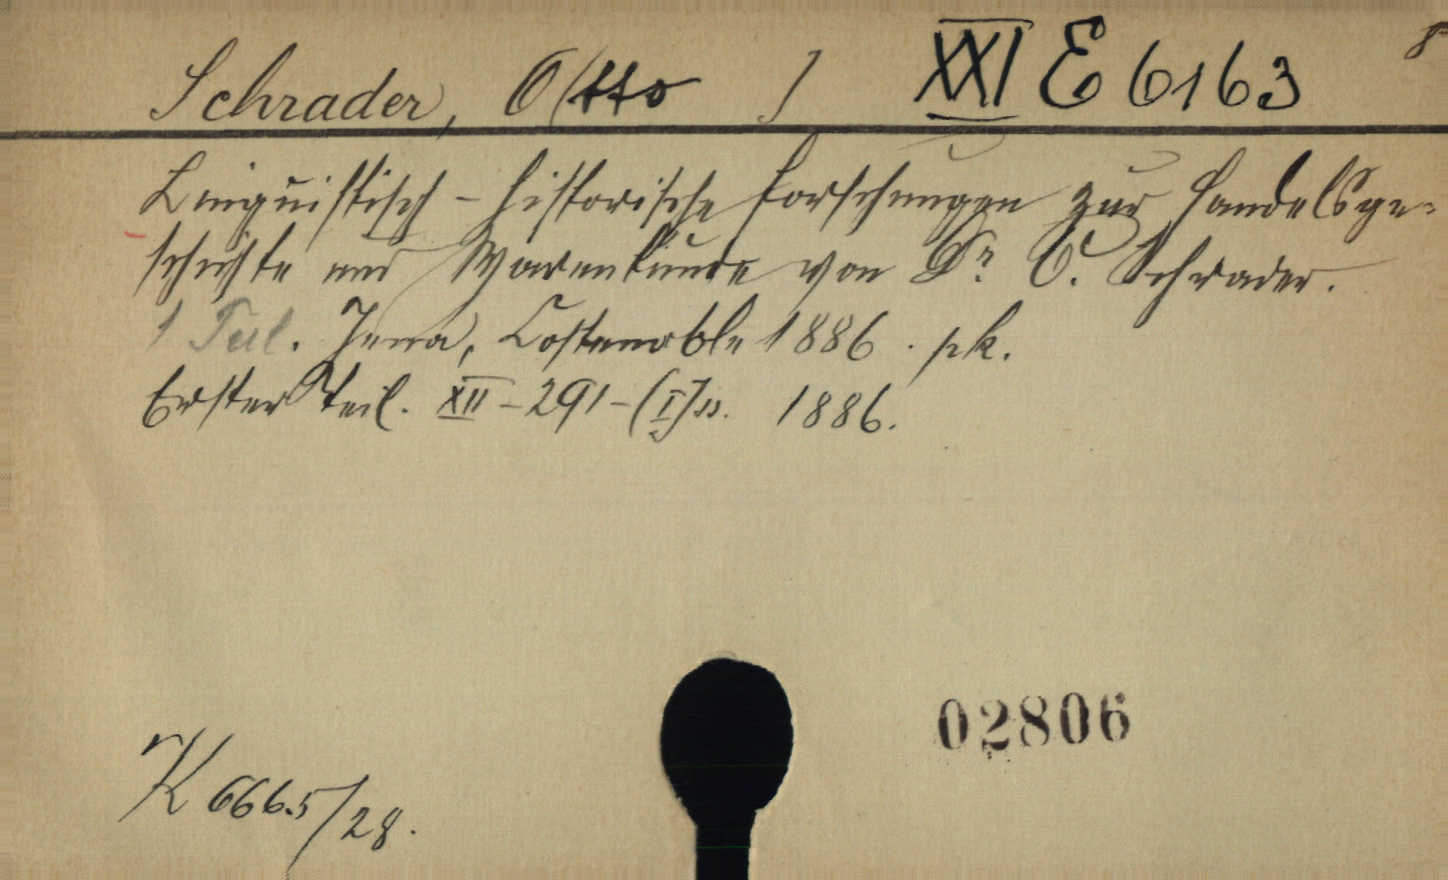 Schrader, O(tto ) XXI E 6163 8°
Linguistisch-historische Forschungen zur Handelsge-
schichte und Warenkunde von Dr. O. Schrader.
1 Teil. Jena, Costenoble 1886. pk.
Erster Teil. XII-291-(I) ss. 1886.
02806
K 666.5/28.